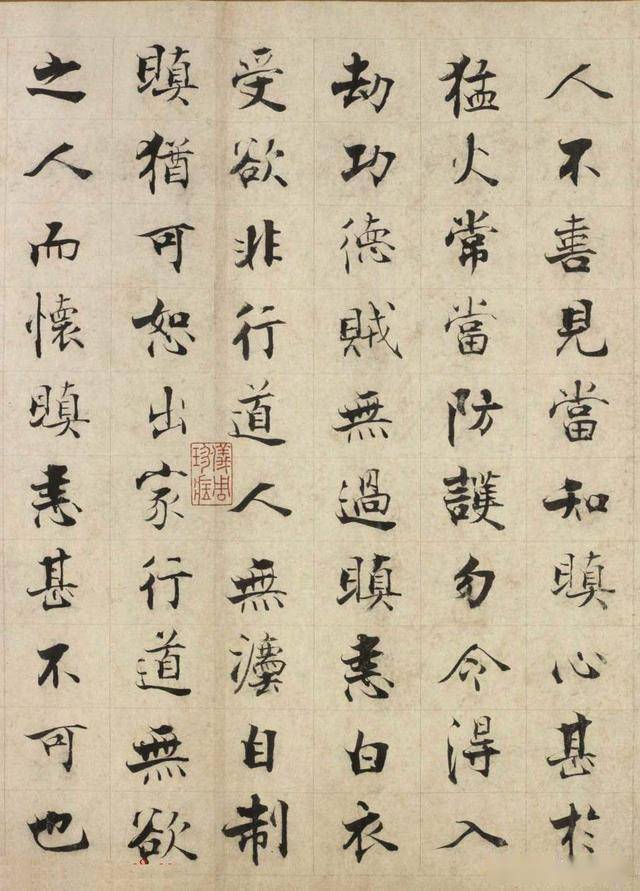 人不善見當知瞋心甚於
猛火常當防護勿令得入
劫功德賊無過瞋恚白衣
受欲非行道人無灋自制
瞋猶可恕出家行道無欲
之人而懷瞋恚甚不可也
儀周珍藏